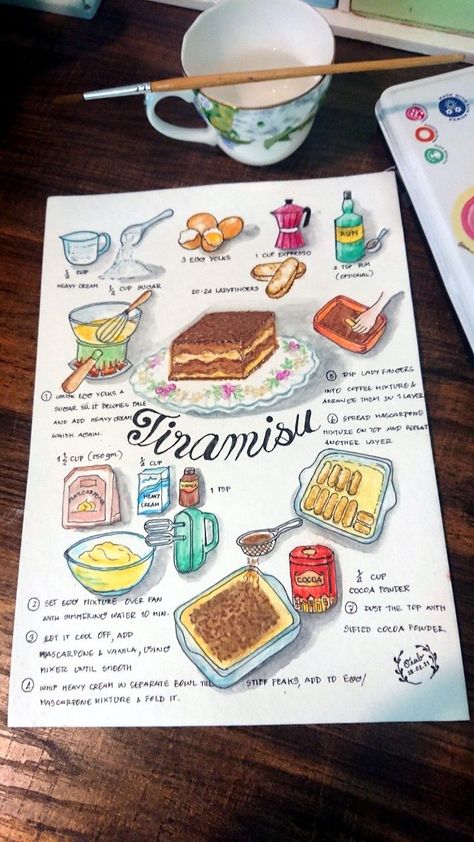 ½ CUP
HEAVY CREAM
½ CUP SUGAR
3 EGG YOLKS
1 CUP EXPRESSO
RUM
2 TSP RUM
(OPTIONAL)
20-24 LADYFINGERS
① WHISK EGG YOLKS &
SUGAR TILL IT BECOMES PALE
AND ADD HEAVY CREAM
WHISK AGAIN.
Tiramisu
⑤ DIP LADY FINGERS
INTO COFFEE MIXTURE &
ARRANGE THEM IN 1 LAYER
⑥ SPREAD MASCARPONE
MIXTURE ON TOP AND REPEAT
ANOTHER LAYER
1½ CUP (350 gm.)
MASCARPONE
½ CUP
HEAVY
CREAM
VANILLA
1 TSP
② SET EGG MIXTURE OVER PAN
WITH SIMMERING WATER 10 MIN.
③ LET IT COOL OFF, ADD
MASCARPONE & VANILLA, USING
MIXER UNTIL SMOOTH
④ WHIP HEAVY CREAM IN SEPARATE BOWL TILL STIFF PEAKS, ADD TO EGG/
MASCARPONE MIXTURE & FOLD IT.
COCOA
½ CUP
COCOA POWDER
⑦ DUST THE TOP WITH
SIFTED COCOA POWDER